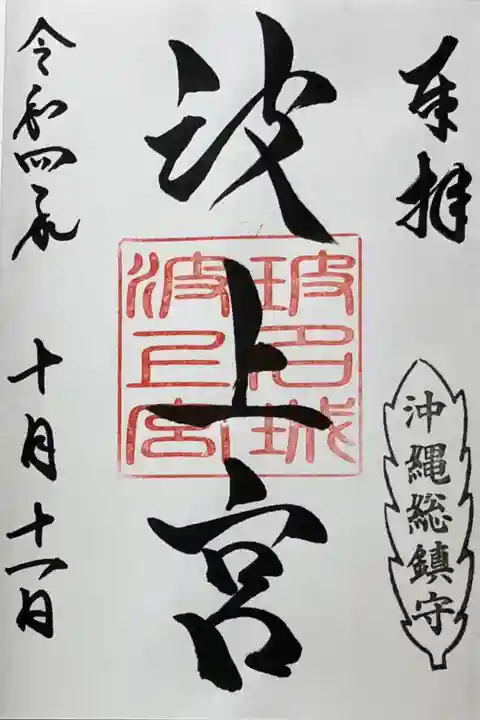 奉拝
沖縄総鎮守
波上宮
玻名城
波上宮
令和四年
十月十一日